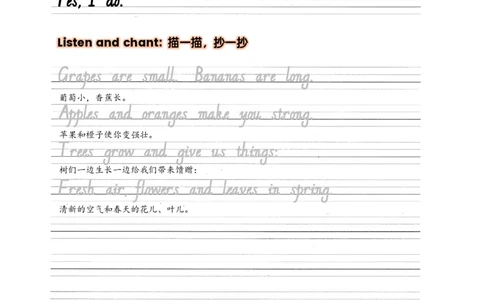 Yes, I do.
Listen and chant: 描一描，抄一抄
Grapes are small. Bananas are long.
葡萄小，香蕉长。
Apples and oranges make you strong.
苹果和橙子使你变强壮。
Trees grow and give us things:
树们一边生长一边给我们带来馈赠：
Fresh air, flowers and leaves in spring.
清新的空气和春天的花儿、叶儿。